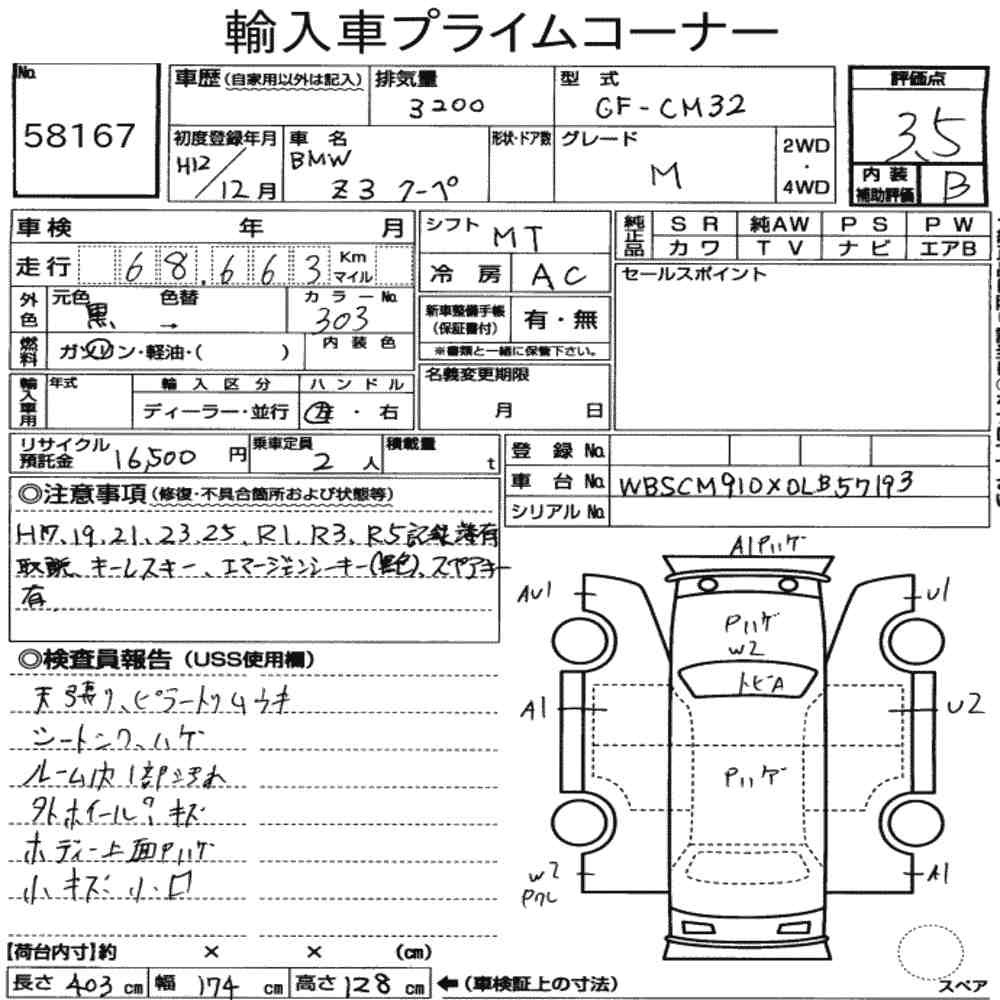 輸入車プライムコーナー
No.
58167
車歴 (自家用以外は記入)
排気量
3200
型 式
GF-CM32
評価点
3.5
初度登録年月
H12/12月
車 名
BMW
Z3 クーペ
形状・ドア数
グレード
M
2WD
・
4WD
内 装
補助評価
B
車検 年 月
走行 68,663 Km
マイル
シフト
MT
冷 房 AC
純正品
S R 純AW P S P W
カ ワ T V ナ ビ エアB
外色
元色 色替 カラーNo.
黒 → 303
新車整備手帳
(保証書付)
有・無
※書類と一緒に保管下さい。
セールスポイント
燃料
ガソリン・軽油・( )
内 装 色
輸入車用
年式
輸 入 区 分
ハ ン ド ル
ディーラー・並行
左 ・ 右
名義変更期限
月 日
リサイクル
預託金
16,500 円
乗車定員
2 人
積載量
t
登 録 No.
車 台 No. WBSCM910X0LB57193
シリアル No.
◎注意事項 (修復・不具合箇所および状態等)
H17、19、21、23、25、R1、R3、R5記録簿有
取説、キーレスキー、エマージェンシーキー(黒色)、スペアキー
有
◎検査員報告 (USS使用欄)
天張り、ピラートリムウキ
シートシワ、ハゲ
ルーム内1部汚れ
外ホイール キズ
ボディー上面Pハゲ
小キズ 小凹
A1Pハゲ
AU1
U1
Pハゲ
W2
トビA
A1
U2
Pハゲ
W2
A1
【荷台内寸】約 × × (cm)
長さ 403 cm 幅 174 cm 高さ 128 cm ←(車検証上の寸法)
スペア